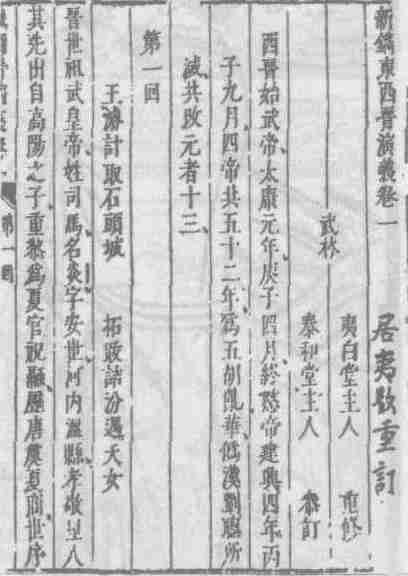 新鐫東西晉演義卷一
居夷歟重訂
武林
夷白堂主人 重修
泰和堂主人 參訂
西晉始武帝太康元年庚子四月終愍帝建興四年丙
子九月四帝共五十二年爲五胡亂華僞漢劉聰所
滅共改元者十三
第一回
王濬計取石頭城 拓跋詰汾遇天女
晉世祖武皇帝姓司馬名炎字安世河內溫縣孝敬里人
其先出自高陽之子重黎爲夏官祝融歷唐虞夏商世序
第一回